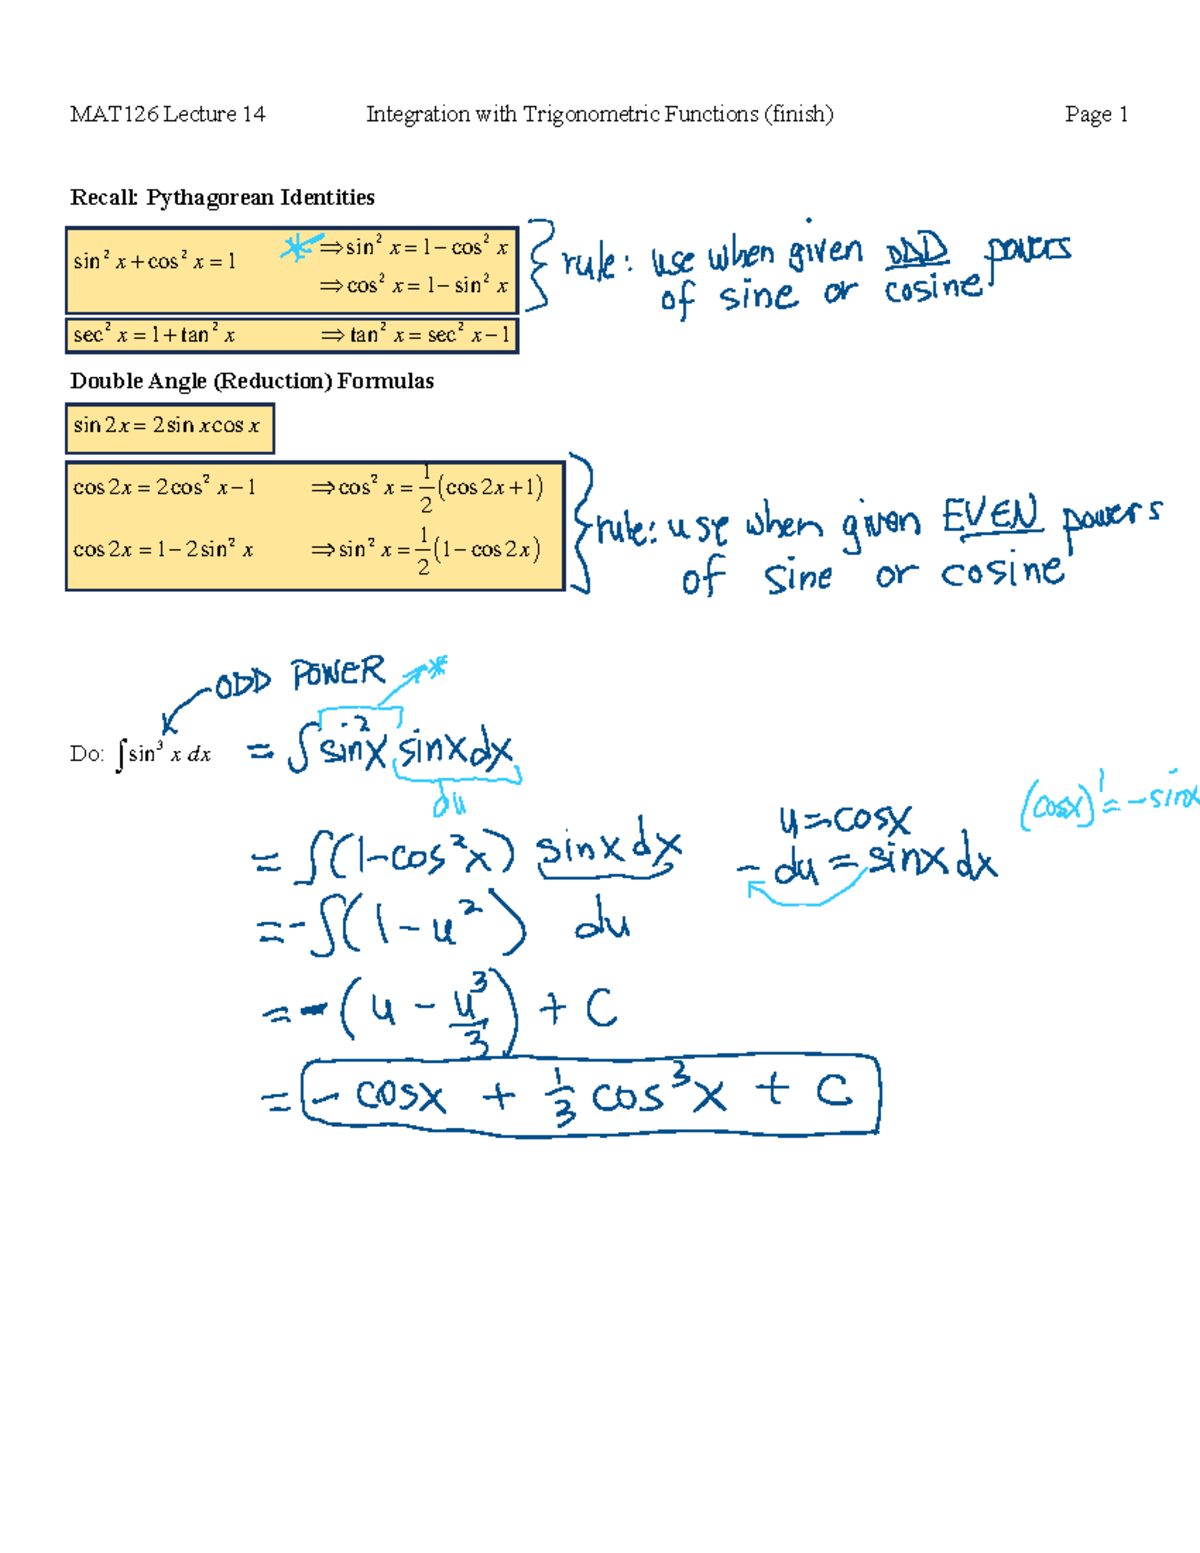 MAT126 Lecture 14 Integration with Trigonometric Functions (finish) Page 1
Recall: Pythagorean Identities
sin² x + cos² x = 1 * ⇒ sin² x = 1 − cos² x
⇒ cos² x = 1 − sin² x
rule: use when given ODD powers
of sine or cosine
sec² x = 1 + tan² x ⇒ tan² x = sec² x − 1
Double Angle (Reduction) Formulas
sin 2x = 2 sin x cos x
cos 2x = 2 cos² x − 1 ⇒ cos² x = 1/2 (cos 2x + 1)
cos 2x = 1 − 2 sin² x ⇒ sin² x = 1/2 (1 − cos 2x)
rule: use when given EVEN powers
of sine or cosine
ODD POWER *
Do: ∫ sin³ x dx = ∫ sin² x sin x dx
du
(cosx)' = − sinx
u = cosx
= ∫ (1 − cos² x) sinx dx − du = sinx dx
= − ∫ (1 − u²) du
= − (u − u³/3) + C
= − cosx + 1/3 cos³ x + C